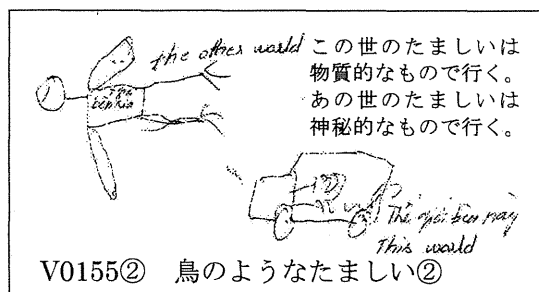 The other world
この世のたましいは
物質的なもので行く。
あの世のたましいは
神秘的なもので行く。
The
This world
V0155② 鳥のようなたましい②